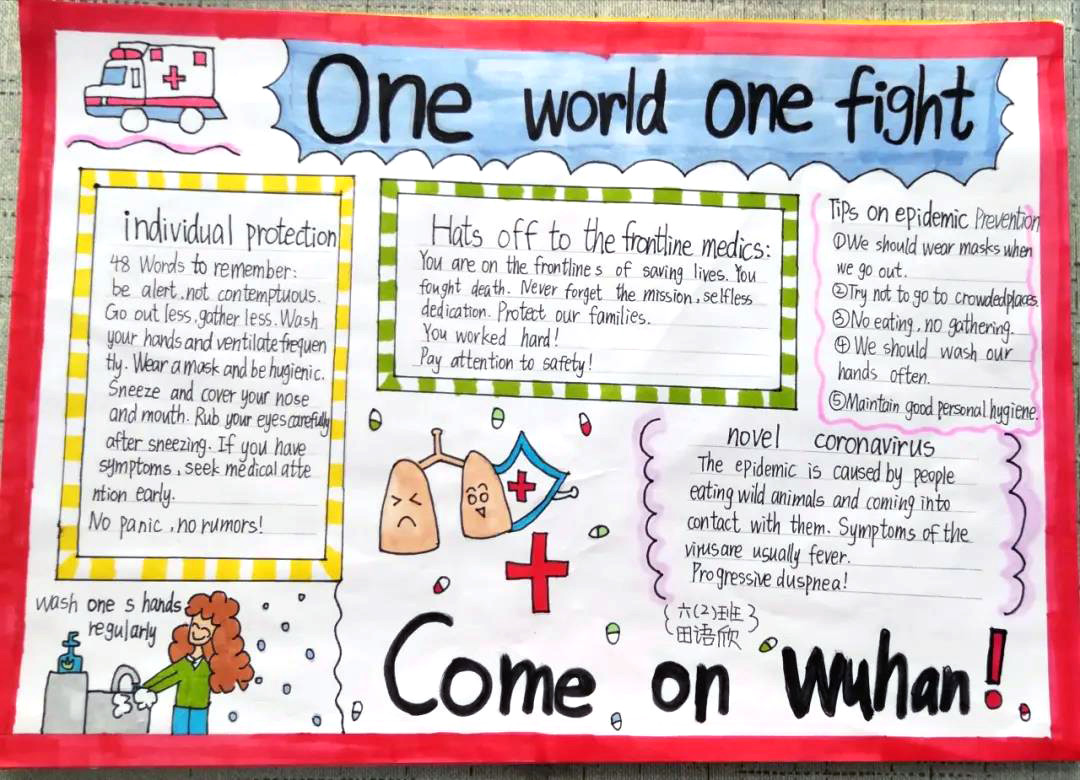 One world one fight
individual protection
48 Words to remember:
be alert, not contemptuous.
Go out less, gather less. Wash
your hands and ventilate frequen
tly. Wear a mask and be hugienic.
Sneeze and cover your nose
and mouth. Rub your eyes carefully
after sneezing. If you have
symptoms, seek medical atte
ntion early.
No panic, no rumors!
Hats off to the frontline medics:
You are on the frontlines of saving lives. You
fought death. Never forget the mission, selfless
dedication. Protect our families.
You worked hard!
Pay attention to safety!
Tips on epidemic Prevention
①We should wear masks when
we go out.
②Try not to go to crowded places.
③No eating, no gathering.
④We should wash our
hands often.
⑤Maintain good personal hygiene.
novel coronavirus
The epidemic is caused by people
eating wild animals and coming into
contact with them. Symptoms of the
virus are usually fever.
Progressive duspnea!
wash one s hands
regularly
六(2)班
田语欣
Come on Wuhan!